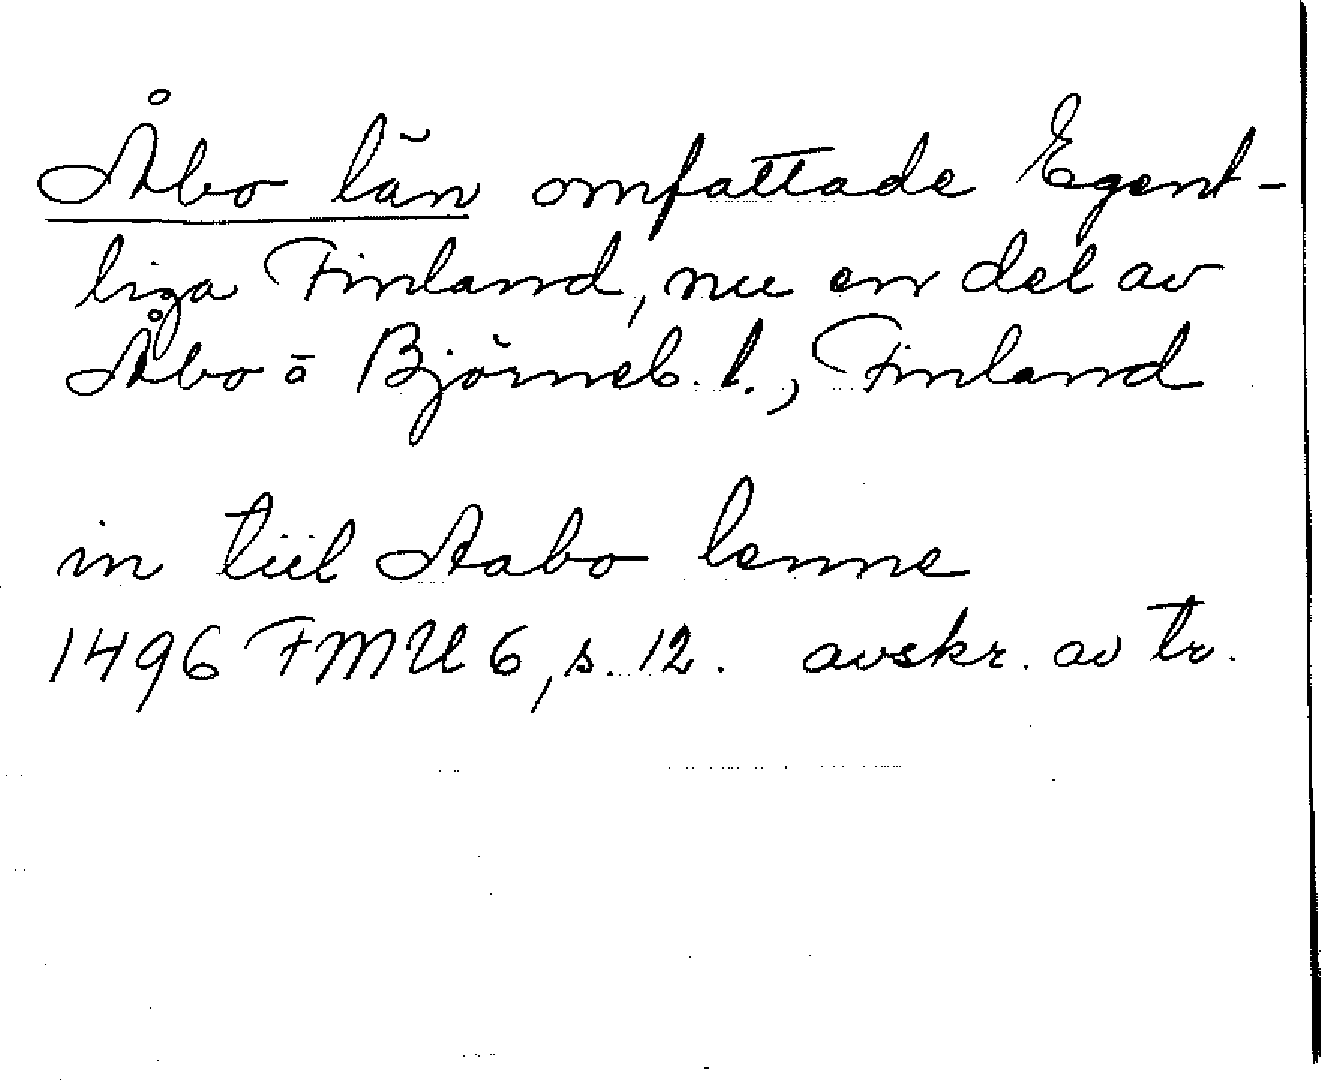 Åbo län omfattade Egent-
liga Finland, nu en del av
Åbo o Björneb. l., Finland
in tiil Aabo lenne
1496 FMU 6, s. 12. avskr. av tr.